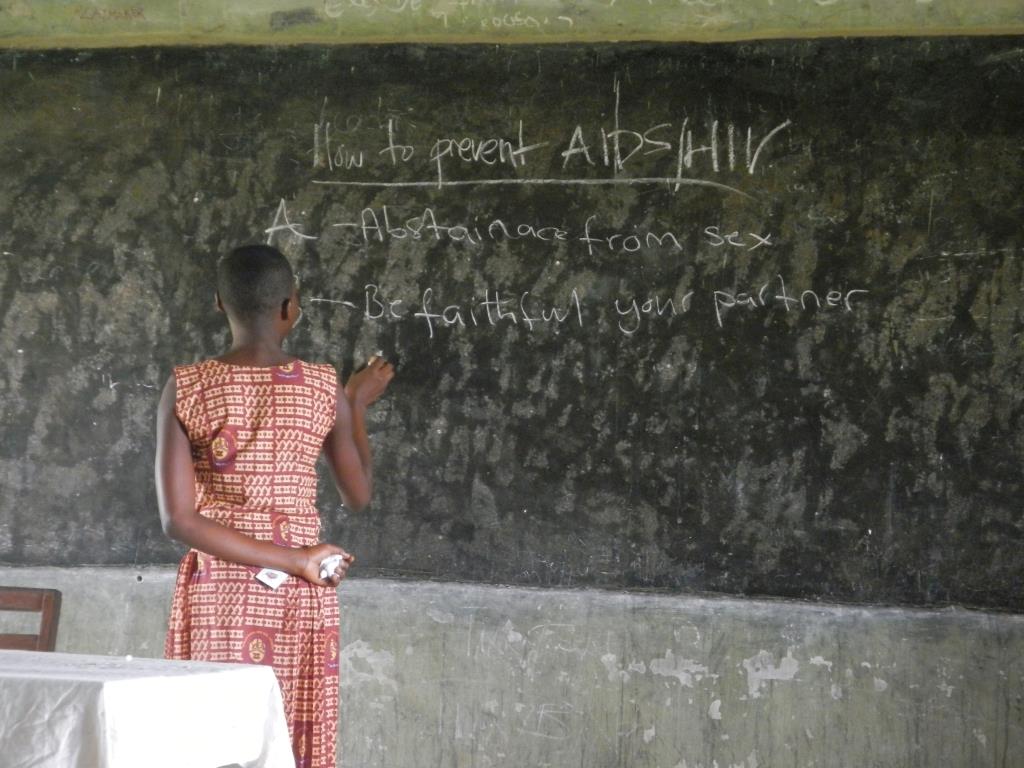 How to prevent AIDS/HIV
A - Abstainace from sex
- Be faithful your partner